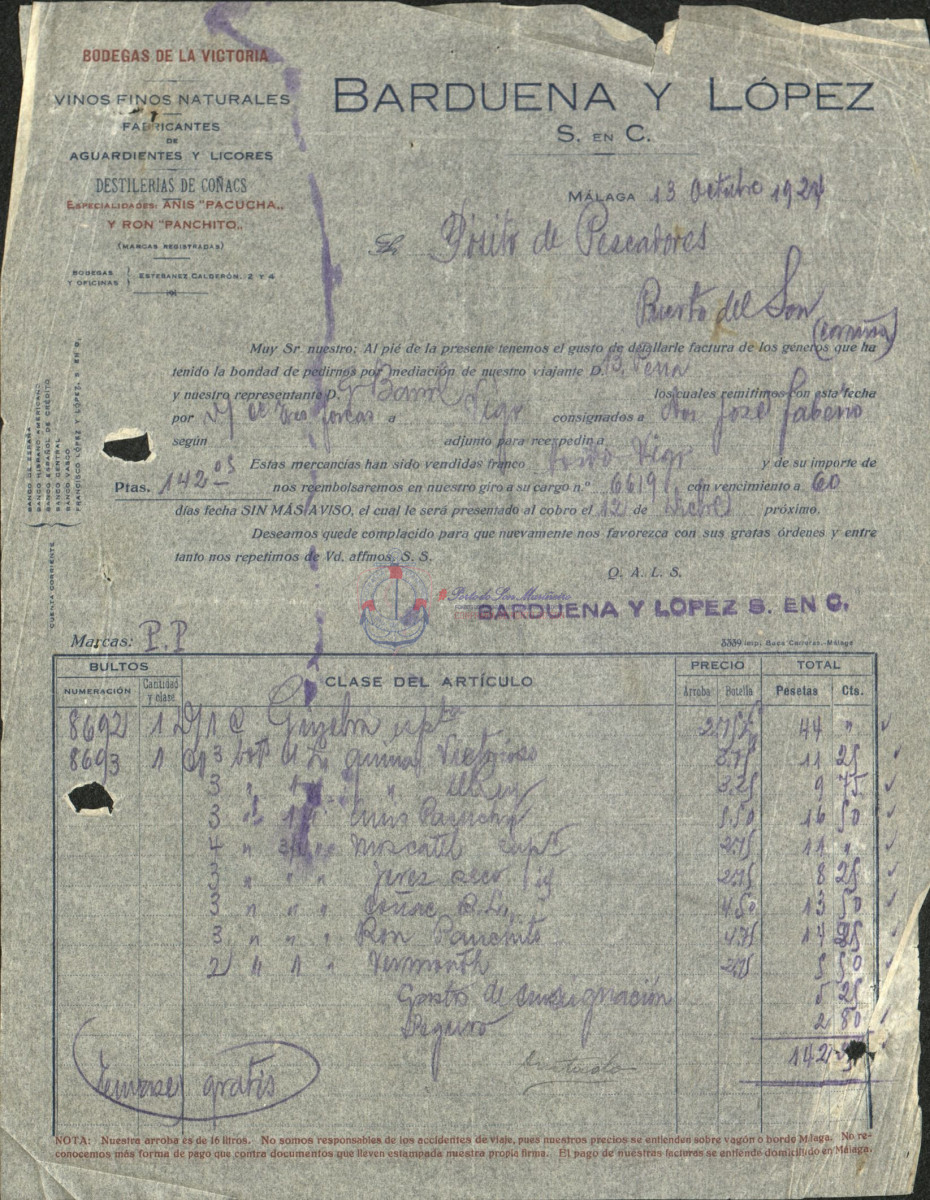 BODEGAS DE LA VICTORIA
VINOS FINOS NATURALES
FABRICANTES
DE
AGUARDIENTES Y LICORES
DESTILERIAS DE COÑACS
ESPECIALIDADES: ANIS "PACUCHA„
Y RON "PANCHITO„
(MARCAS REGISTRADAS)
BODEGAS Y OFICINAS } ESTEBANEZ CALDERÓN, 2 Y 4
BARDUENA Y LÓPEZ
S. EN C.
MÁLAGA 13 Octubre 192
Pósito de Pescadores
Puerto del Son
(Coruña)
Muy Sr nuestro: Al pié de la presente tenemos el gusto de detallarle factura de los géneros que ha
tenido la bondad de pedirnos por mediación de nuestro viajante D. B.
y nuestro representante D. los cuales remitimos con esta fecha
por a Vigo consignados a Don José
según adjunto para reexpedir a
Estas mercancías han sido vendidas franco Vigo y de su importe de
Ptas. 142'05 nos reembolsaremos en nuestro giro a su cargo n.º 6619 con vencimiento a 60
días fecha SIN MÁS AVISO, el cual le será presentado al cobro el 12 de Dicbre próximo.
Deseamos quede complacido para que nuevamente nos favorezca con sus gratas órdenes y entre
tanto nos repetimos de Vd. affmos. S. S.
Q. A. L. S.
BARDUENA Y LOPEZ S. EN C.
Porto do Son Mariñeiro
BANCO DE ESPAÑA
BANCO HISPANO AMERICANO
BANCO ESPAÑOL DE CRÉDITO
BANCO CENTRAL
BANCO VASCO
FRANCISCO LÓPEZ Y LÓPEZ, S. EN C.
CUENTA CORRIENTE
Marcas: P.P
BULTOS CLASE DEL ARTÍCULO PRECIO TOTAL
NUMERACIÓN Cantidad y clase Arroba Botella Pesetas Cts.
8692 1 Ginebra 44 "
8693 1 3 bots 1 L. quina Victorioso 3,75 11 25
3 " 1 " " 3,25 9 75
3 " 1 " Anis Pacucha 5,50 16 50
4 " " Moscatel 2,75 11 "
3 " " " Jerez seco 2,75 8 25
3 " " " Coñac 4,50 13 50
3 " " " Ron Panchito 4,75 14 25
2 " 1 " Vermouth 2,75 5 50
Gastos de consignación 5 25
Seguro 2 80
142
Envase gratis
NOTA: Nuestra arroba es de 16 litros. No somos responsables de los accidentes de viaje, pues nuestros precios se entienden sobre vagón o bordo Málaga. No re-
conocemos más forma de pago que contra documentos que lleven estampada nuestra propia firma. El pago de nuestras facturas se entiende domiciliado en Málaga.